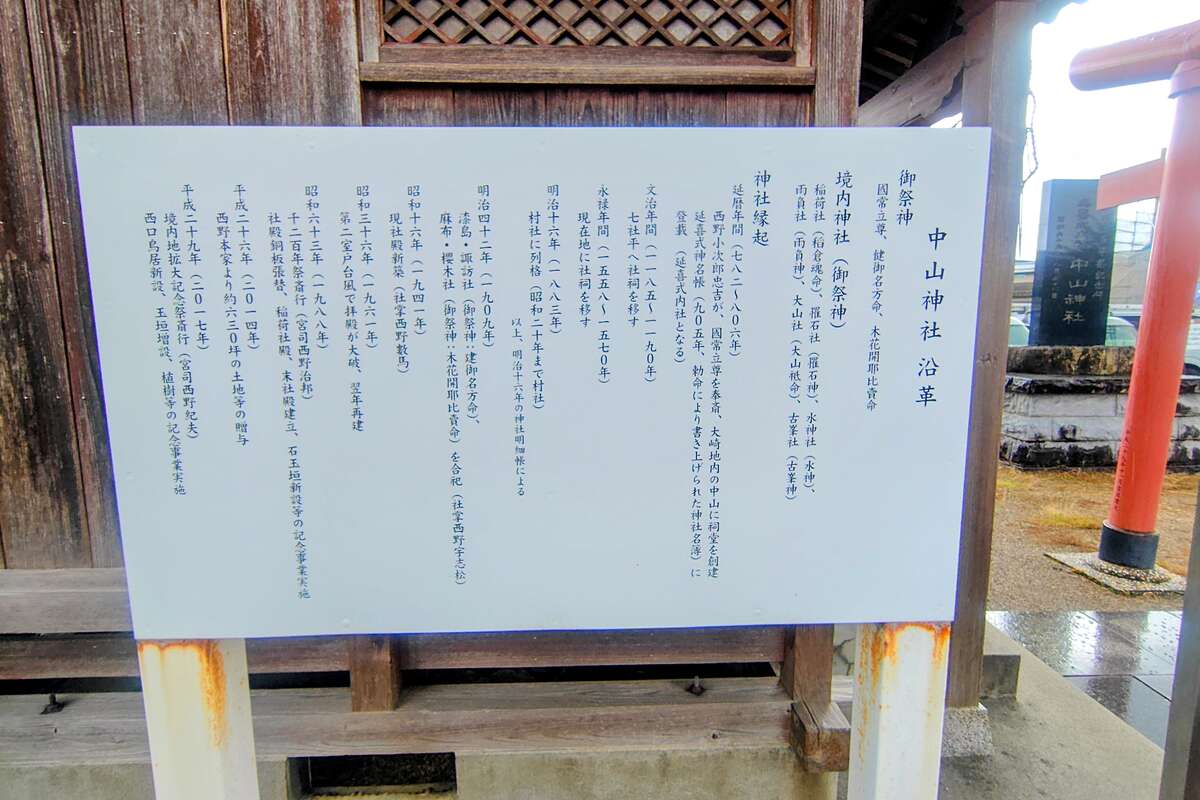 中山神社 沿革
御祭神
國常立尊、健御名方命、木花開耶比賣命
境内神社（御祭神）
稲荷社（稻倉魂命）、摧石社（摧石神）、水神社（水神）、
雨貝社（雨貝神）、大山社（大山祇命）、古峯社（古峯神）
神社縁起
延暦年間（七八二〜八〇六年）
西野小次郎忠吉が、國常立尊を奉斎、大崎地内の中山に祠堂を創建
延喜式神名帳（九〇五年、勅命により書き上げられた神社名簿）に
登載（延喜式内社となる）
文治年間（一一八五〜一一九〇年）
七社平へ社祠を移す
永禄年間（一五五八〜一五七〇年）
現在地に社祠を移す
明治十六年（一八八三年）
村社に列格（昭和二十年まで村社）
以上、明治十六年の神社明細帳による
明治四十二年（一九〇九年）
漆島・諏訪社（御祭神：建御名方命）、
麻布・櫻木社（御祭神：木花開耶比賣命）を合祀（社掌西野宇志松）
昭和十六年（一九四一年）
現社殿新築（社掌西野數馬）
昭和三十六年（一九六一年）
第二室戸台風で拝殿が大破、翌年再建
昭和六十三年（一九八八年）
千二百年祭斎行（宮司西野治邦）
社殿銅板張替、稲荷社殿、末社殿建立、石玉垣新設等の記念事業実施
平成二十六年（二〇一四年）
西野本家より約六三〇坪の土地等の贈与
平成二十九年（二〇一七年）
境内地拡大記念祭斎行（宮司西野紀夫）
西口鳥居新設、玉垣増設、植樹等の記念事業実施
中山神社